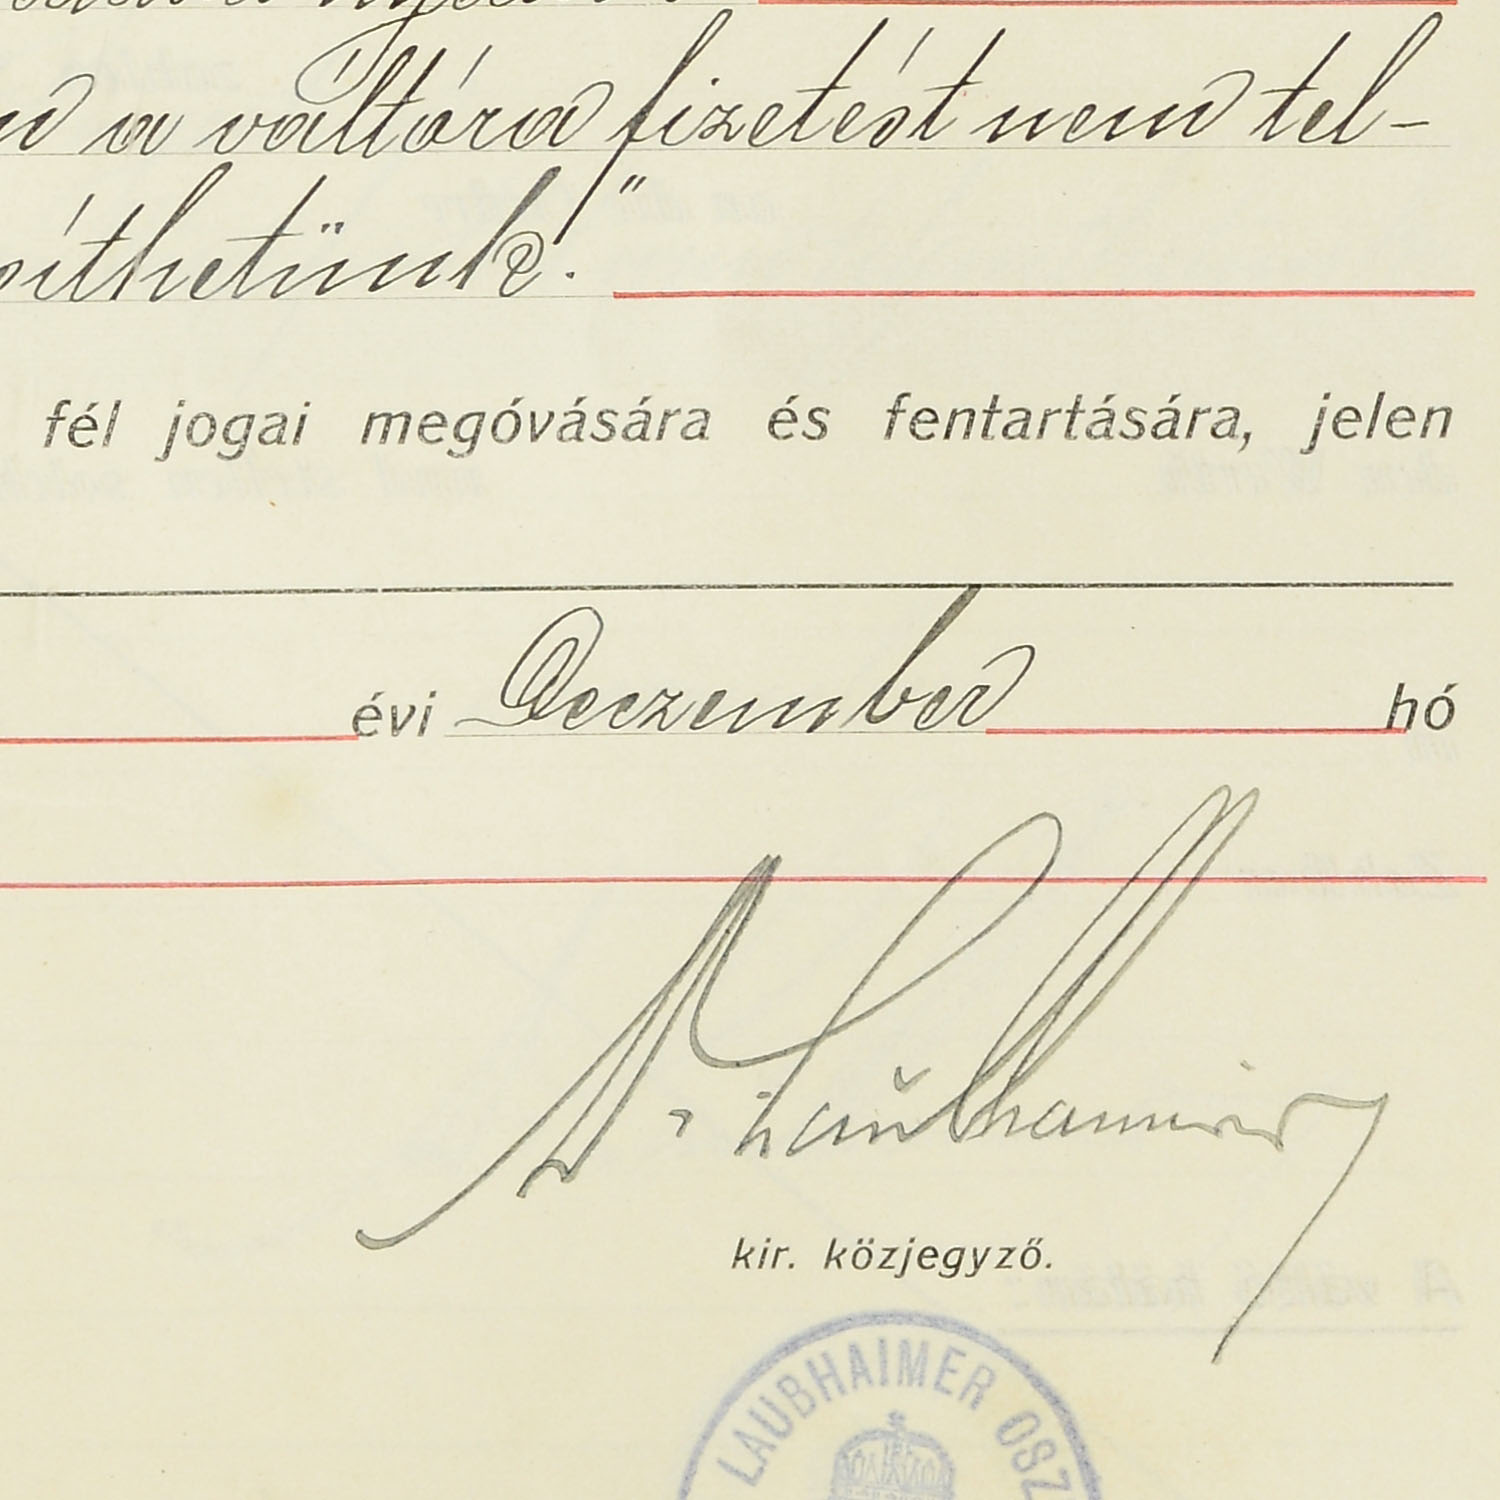 a váltóra fizetést nem tel-
síthetünk."
fél jogai megóvására és fentartására, jelen
évi Deczember hó
Dr Laubhaimer
kir. közjegyző.
LAUBHAIMER OSZ